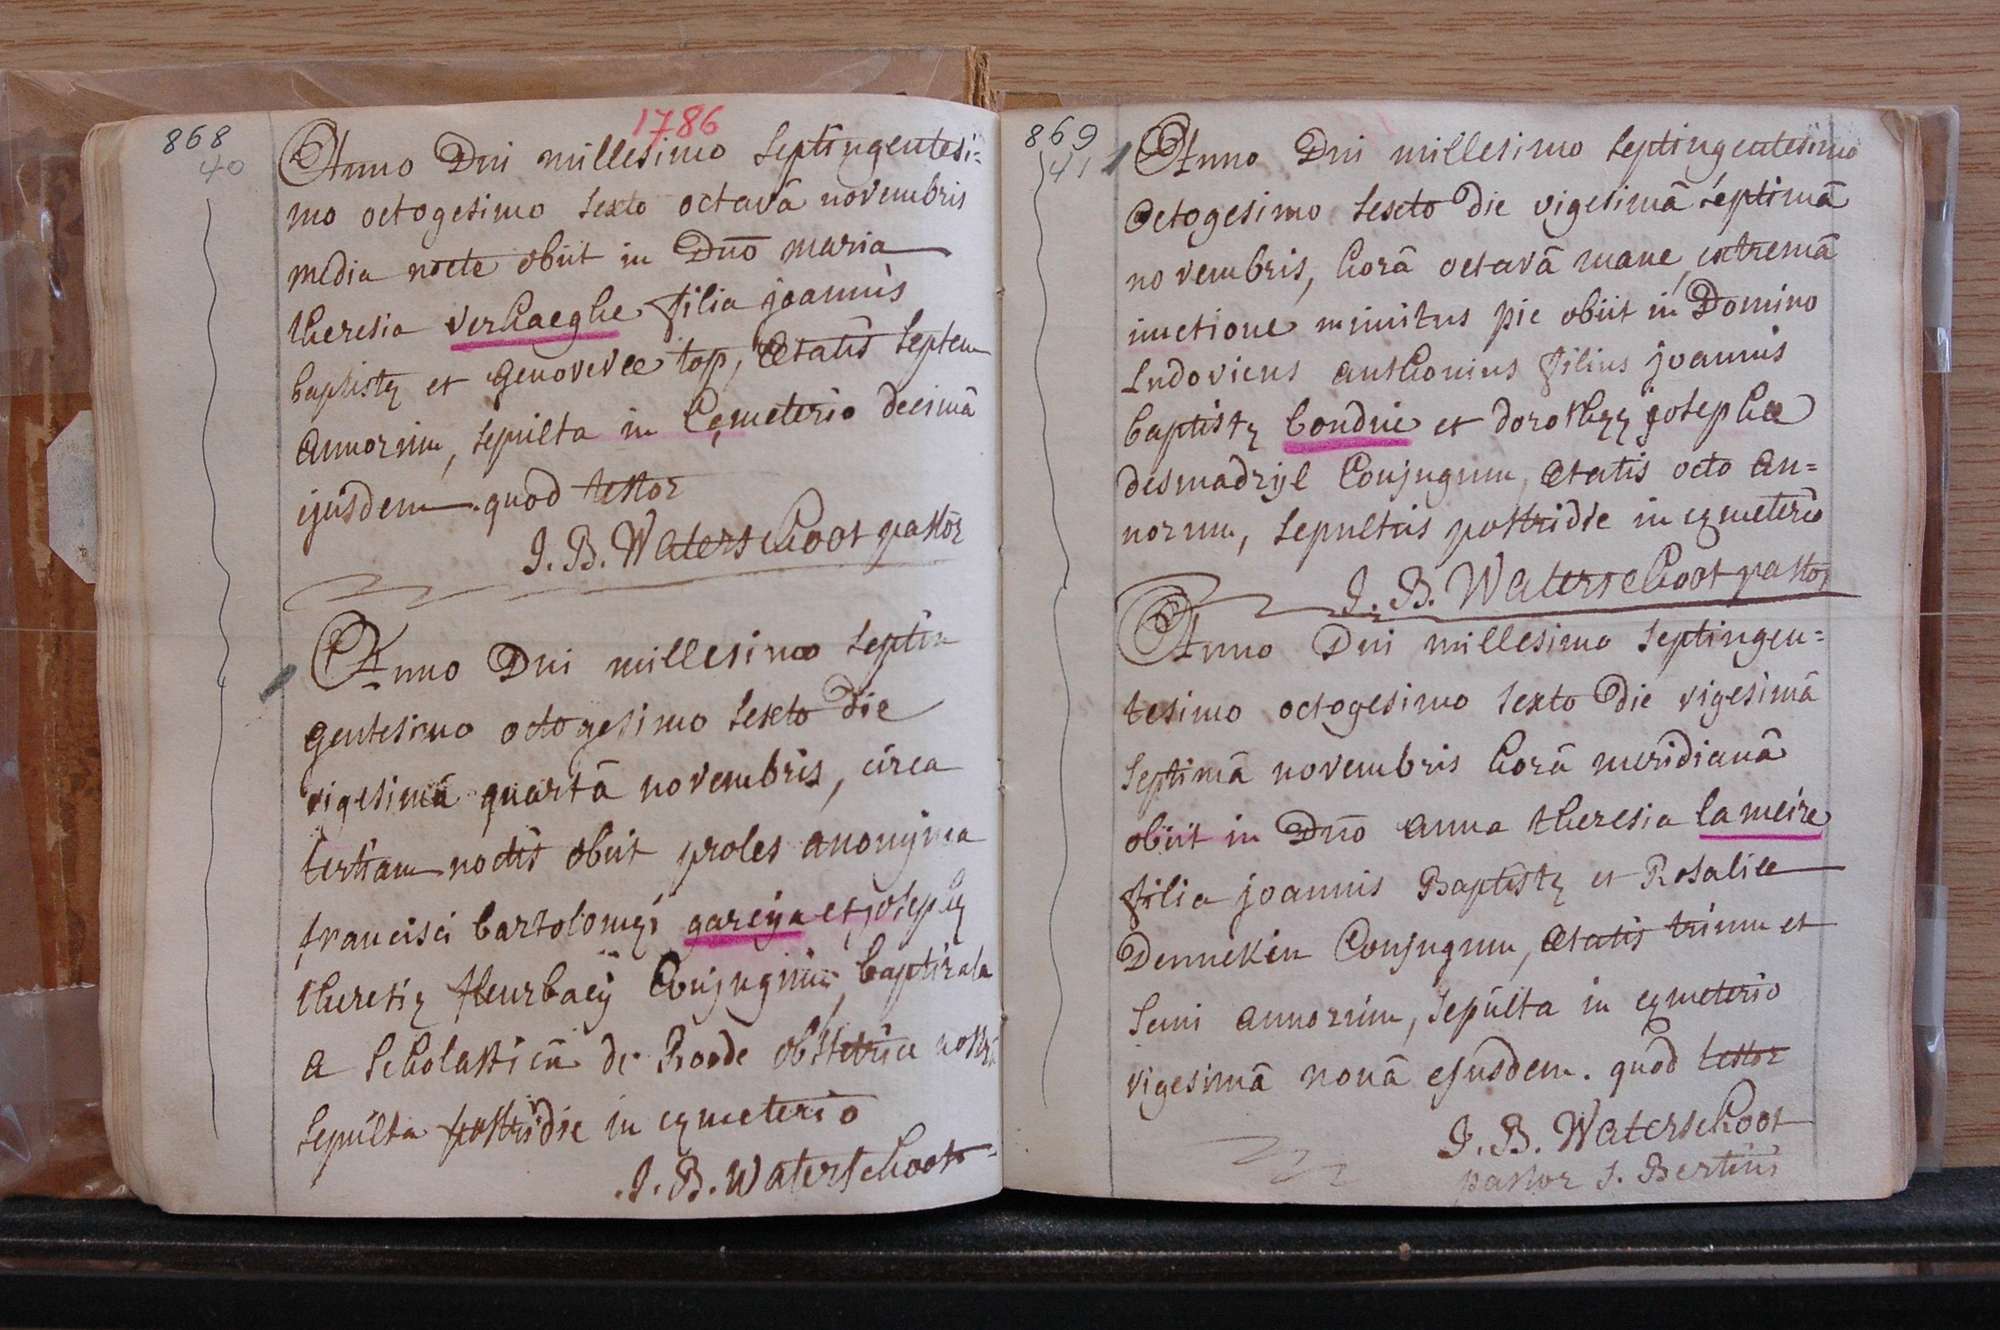 868
40
1786
Anno Dni millesimo septingentesi=
mo octogesimo sexto octavâ novembris
media nocte obiit in Dno maria
theresia verhaeghe filia joannis
baptistę et genovevæ top, ætatis septem
annorum, sepulta in Cęmeterio decimâ
ejusdem. quod testor
J. B. Waterschoot pastor
Anno Dni millesimo septin
gentesimo octogesimo sexto die
vigesimâ quartâ novembris, circa
tertiam noctis obiit proles anonyma
francisci bartolomęi garcija et josephę
theresię fleurbaeij Conjugum, baptizata
a Scholasticâ de Roode obstetrice nostrâ
sepulta postridie in cęmeterio
J. B. Waterschoot
869
41
Anno Dni millesimo septingentesimo
octogesimo sexto die vigesimâ septimâ
novembris, horâ octavâ mane, extremâ
unctione munitus pie obiit in Domino
Ludovicus anthonius filius joannis
baptistę bonduc et dorothęę josephæ
desmadrijl Conjugum, ætatis octo an=
norum, sepultus postridie in cęmeterio
J. B. Waterschoot pastor
Anno Dni millesimo septingen=
tesimo octogesimo sexto die vigesimâ
septimâ novembris horâ meridianâ
obiit in Dno anna theresia lameire
filia joannis Baptistę et Rosaliæ
Dennekin Conjugum, ætatis trium et
semi annorum, sepulta in cęmeterio
vigesimâ nonâ ejusdem. quod testor
J. B. Waterschoot
pastor S. Bertini